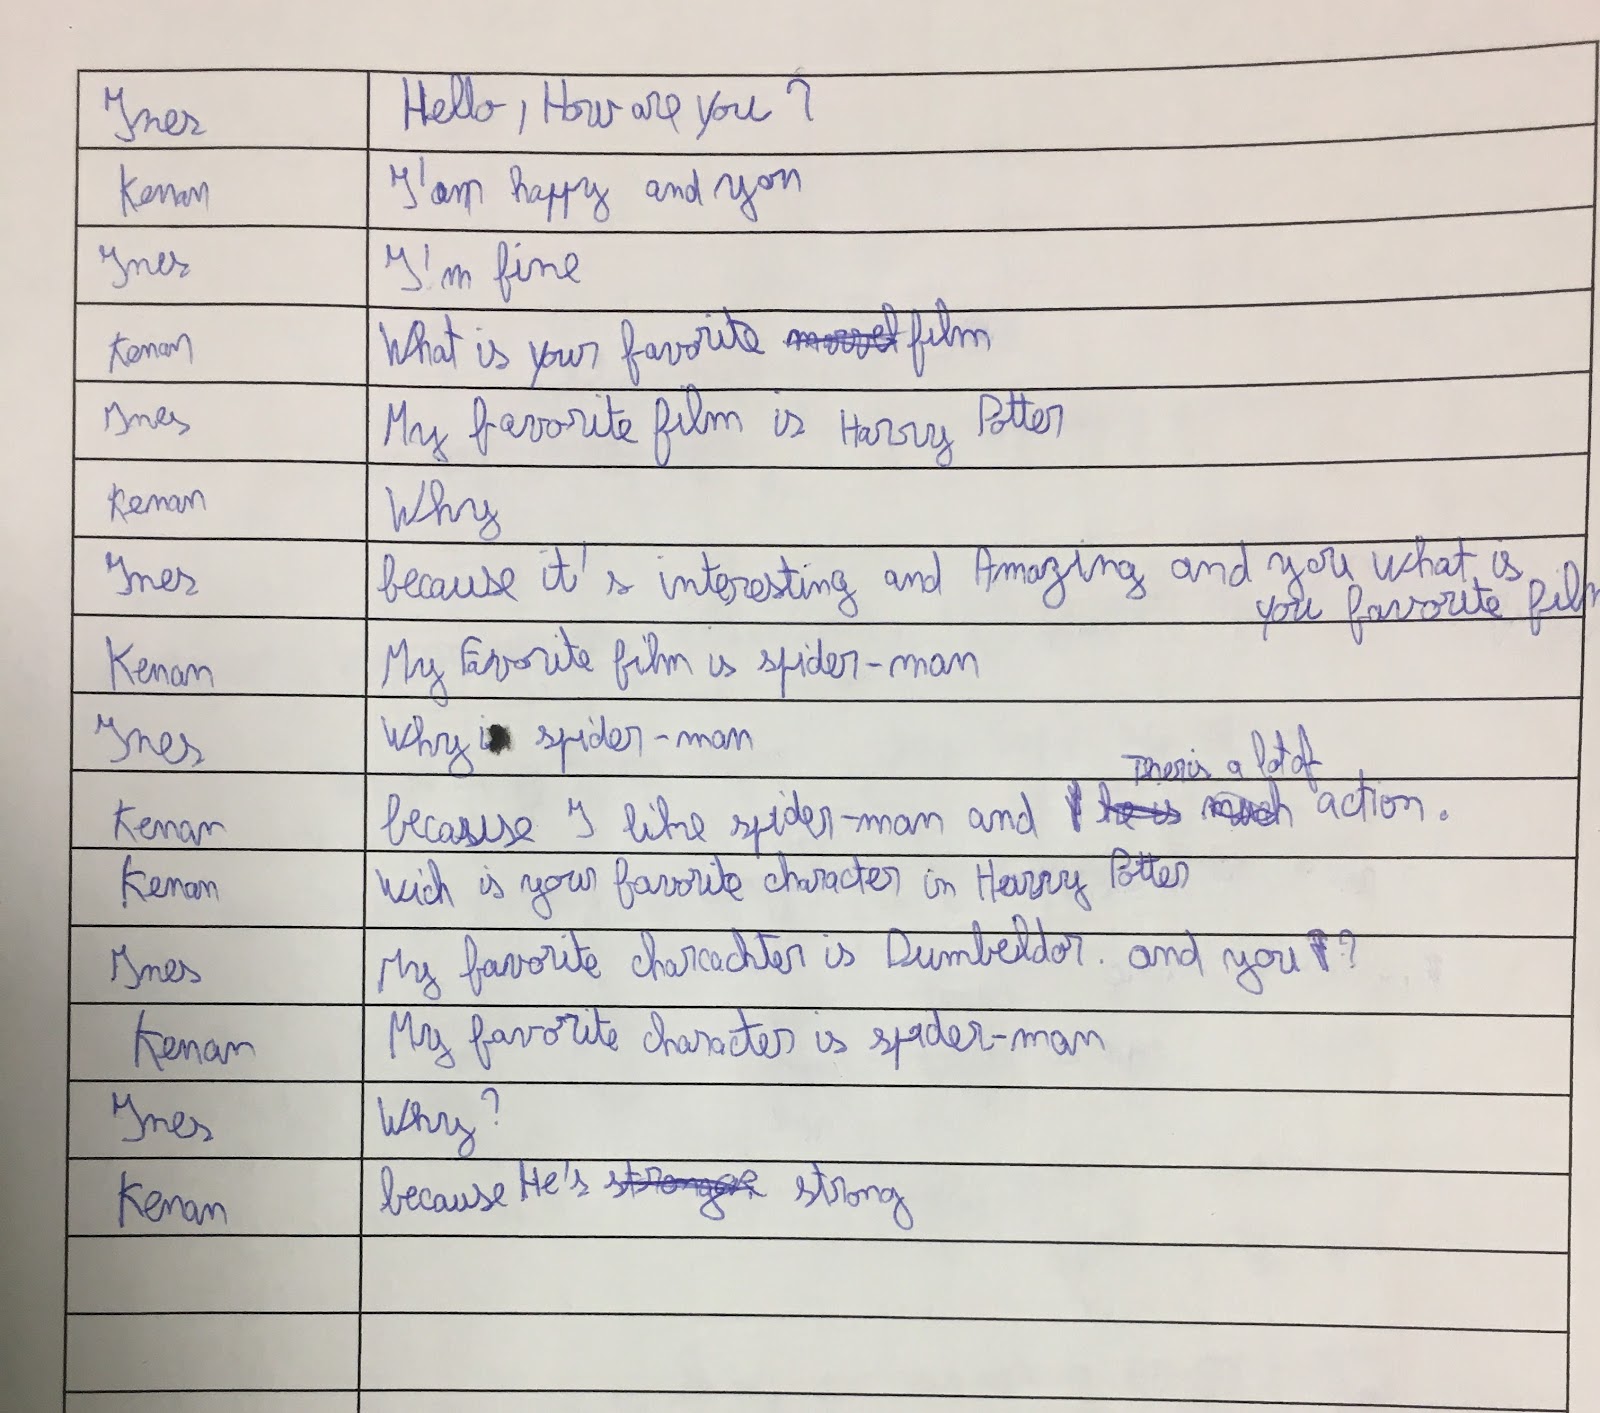 Ines Hello, How are you?
Kenan I'am happy and you
Ines I'm fine
Kenan What is your favorite film
Ines My favorite film is Harry Potter
Kenan Why
Ines because it's interesting and Amazing and you what is
you favorite film
Kenan My Favorite film is spider-man
Ines Why spider-man
There is a lot of
Kenan because I like spider-man and he is much action.
Kenan wich is your favorite character in Harry Potter
Ines My favorite charcachter is Dumbeldor. and you?
Kenan My favorite character is spider-man
Ines Why?
Kenan because He's stronger strong